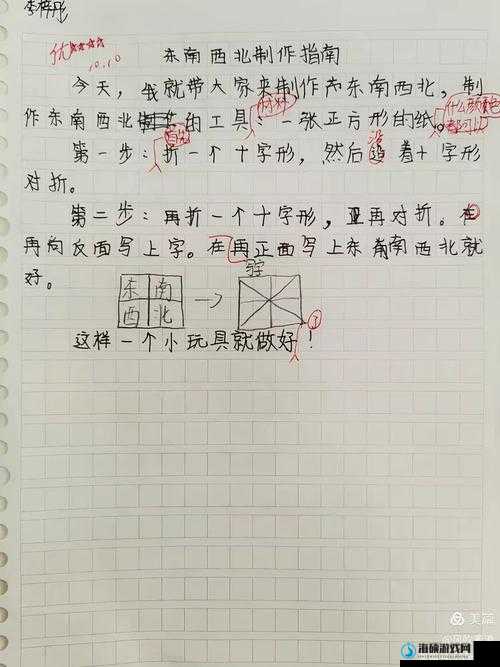 李梓彤
优
10.10
东南西北制作指南
今天，我就带大家来制作东南西北，制
作东南西北的工具：一张正方形的纸。
材料
什么颜色
都可以
第一步：折一个十字形，然后沿着十字形
对折。
第二步：再折一个十字形，再对折。在
再向反面写上字。在再正面写上东南西北就
好。
写字
东 南
西 北
了
这样一个小玩具就做好！
美篇
海硕游戏网